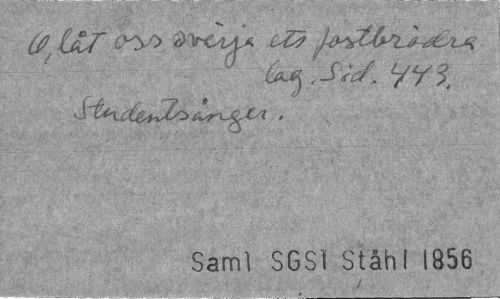 O, låt oss svärja ett fostbrödra
lag. Sid. 443.
Studentsånger.
Saml SGSI Ståhl 1856